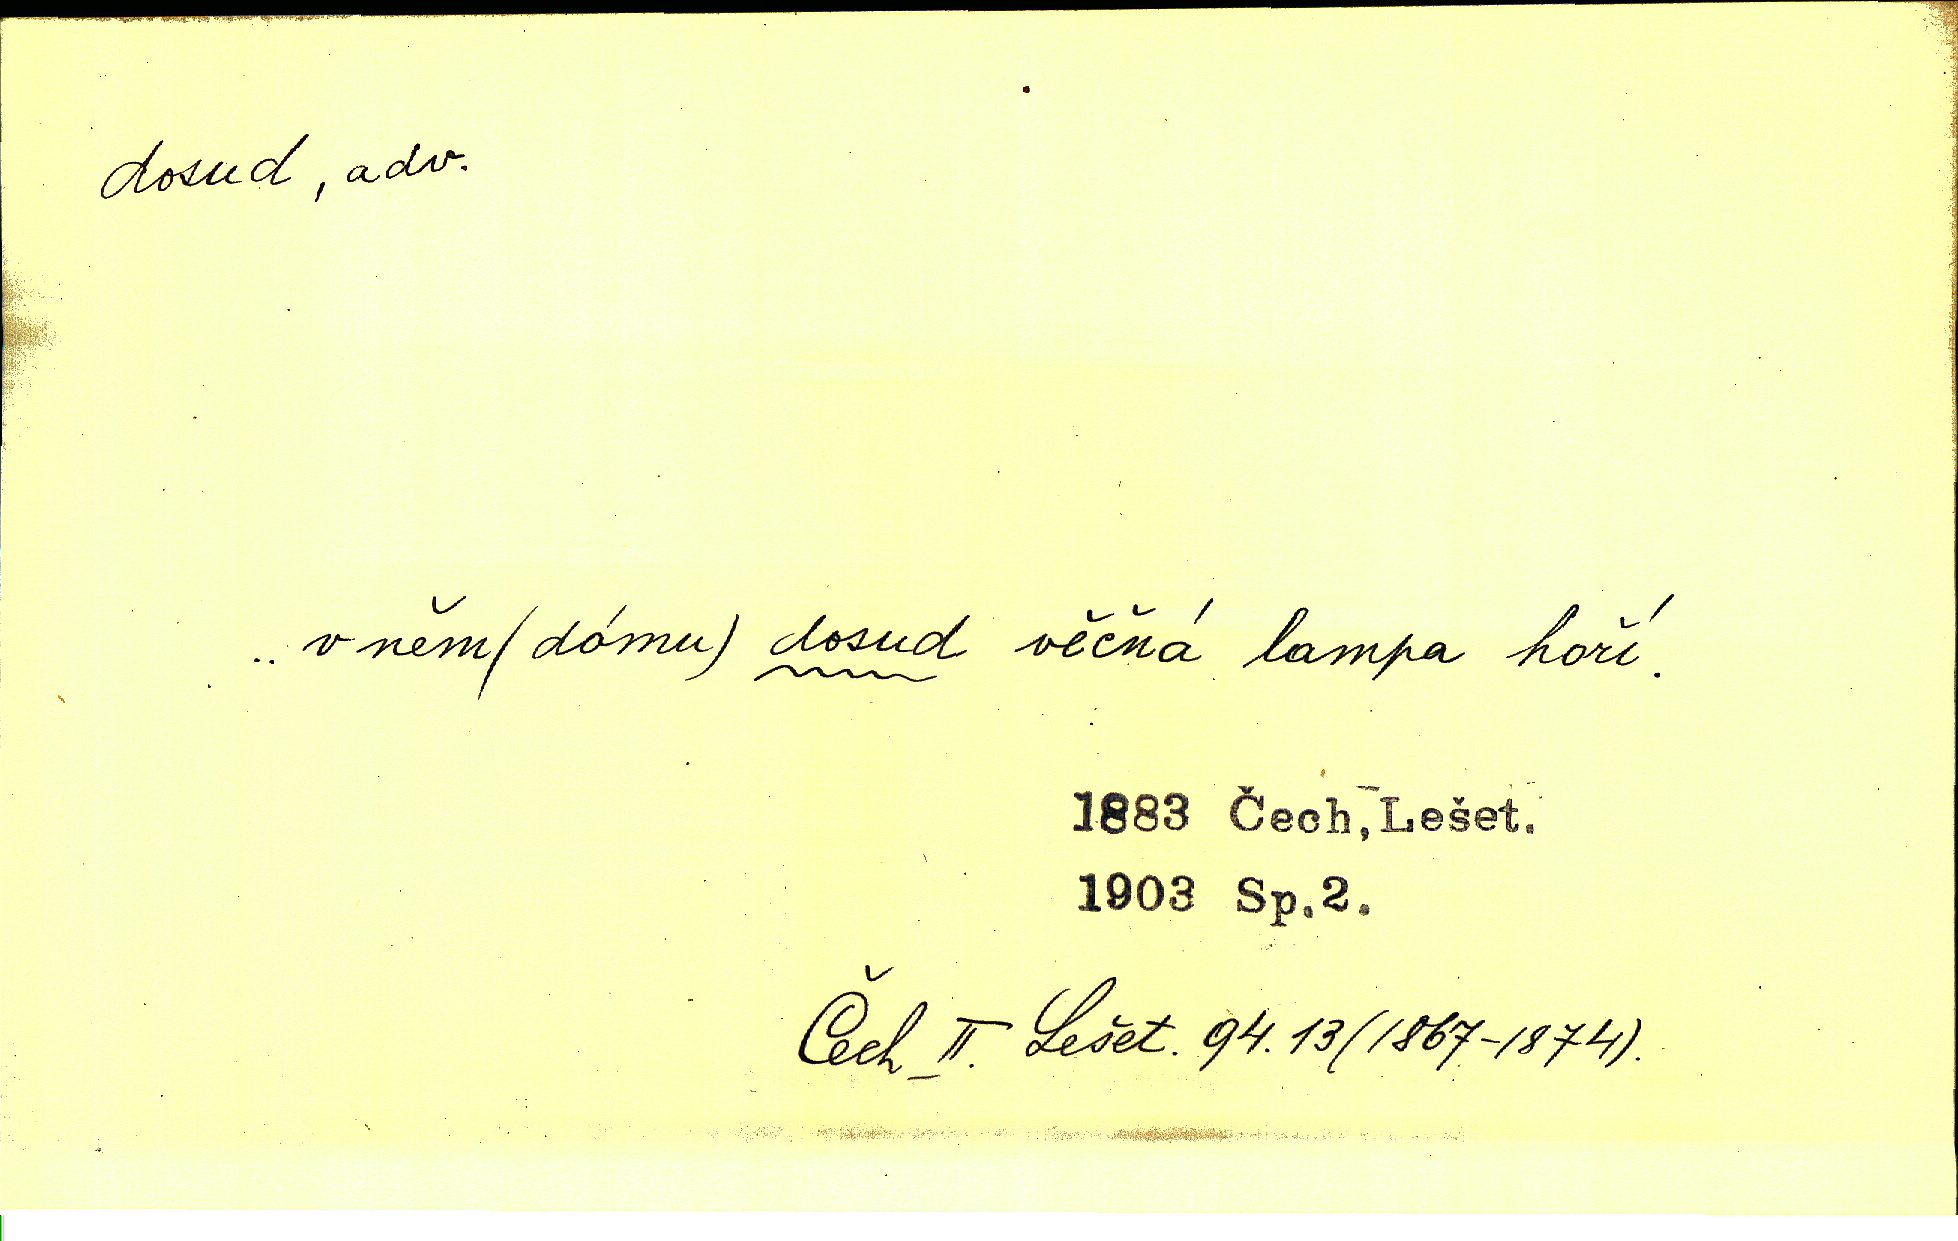 dosud, adv.
.. v něm (dómu) dosud věčná lampa hoří.
1883 Čech, Lešet.
1903 Sp.2.
Čech II. Lešet. 94. 13 (1867-1874).